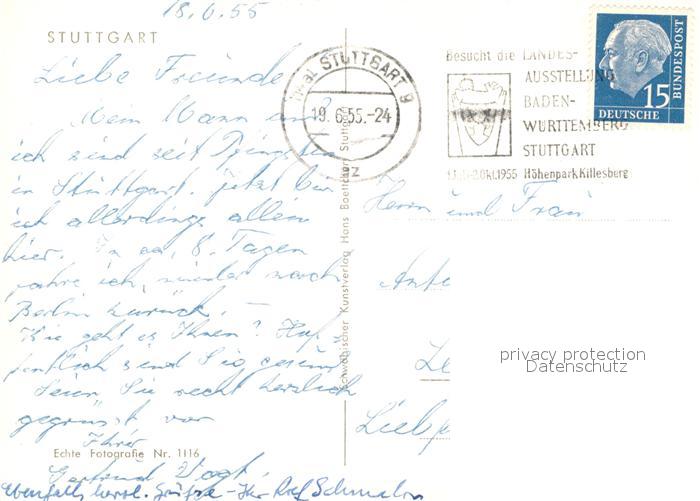 18.6.55
STUTTGART
Liebe Freunde
Mein Mann und
ich sind seit Pfingsten
in Stuttgart. Jetzt bin
ich allerdings allein
hier. In ca. 8 Tagen
fahre ich wieder nach
Berlin zurück. –
Wie geht es Ihnen? Hof-
fentlich sind Sie gesund
Seien Sie recht herzlich
gegrüsst von
Ihrer
Echte Fotografie Nr. 1116
Gertrud Vogt
Ebenfalls herzl. Grüße – Ihr
Schwäbischer Kunstverlag Hans Boettcher, Stuttgart
STUTTGART 9
19.6.55.-24
Besucht die LANDES-
AUSSTELLUNG
BADEN-
WÜRTTEMBERG
STUTTGART
1955 Höhenpark Killesberg
15
DEUTSCHE
BUNDESPOST
Herrn und Frau
privacy protection
Datenschutz